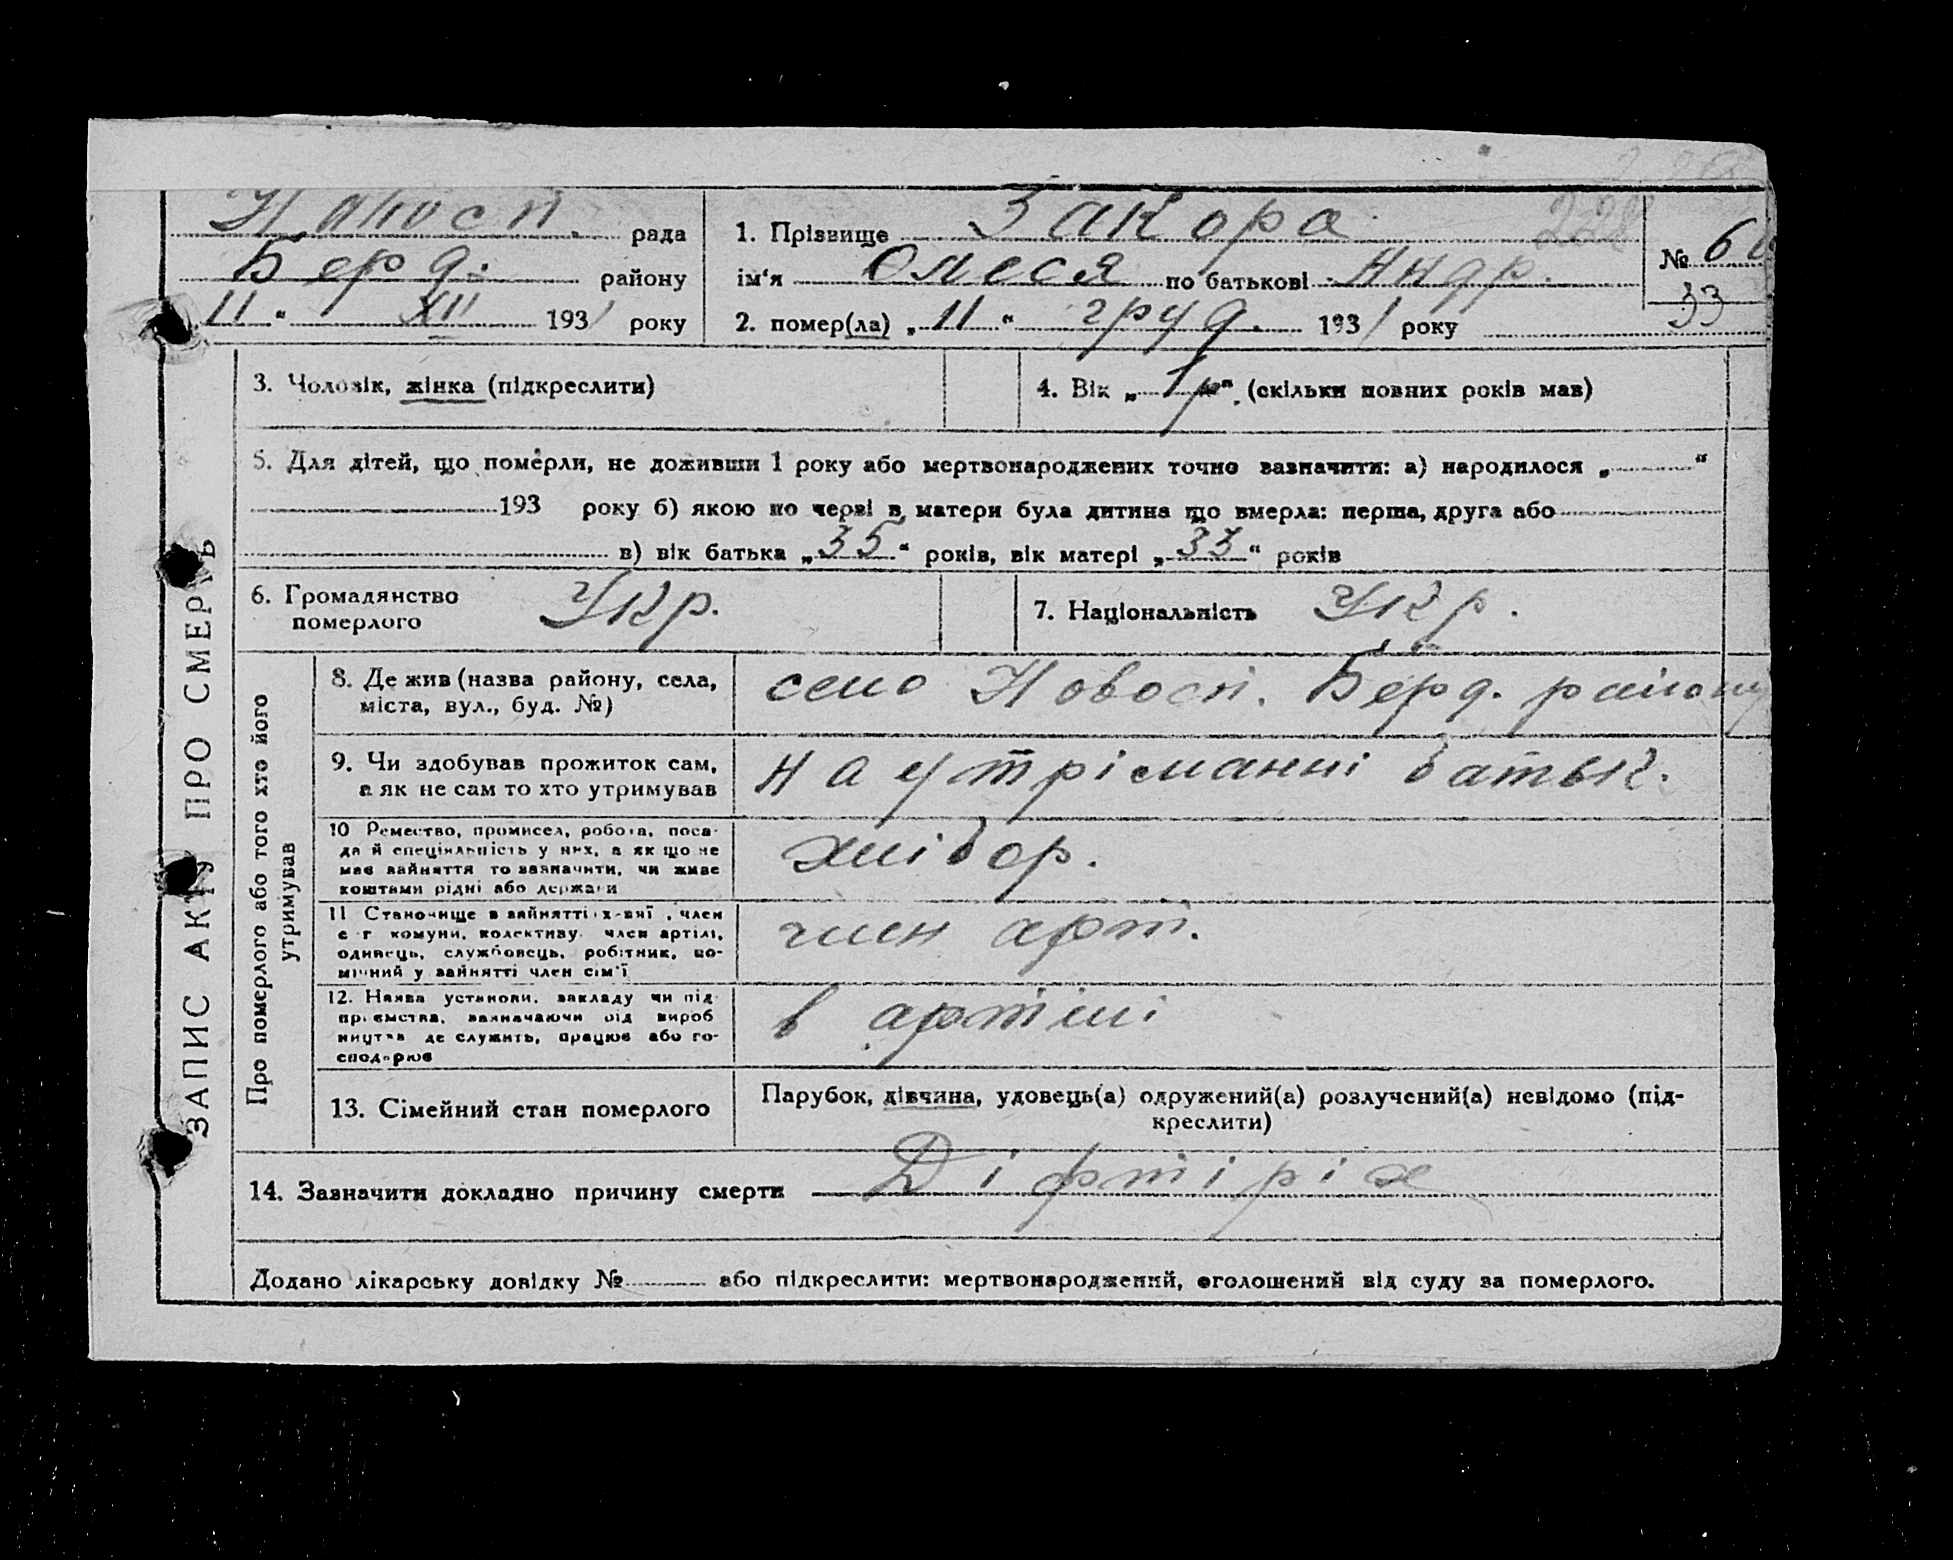 Новосп. рада
Берд. районy
11 " XII 1931 року
1. Прізвище Закора
ім'я Олеся по батькові Андр.
2. помер(ла) „ 11 " груд. 1931 року
№ 6
33
228
ЗАПИС АКТУ ПРО СМЕРТЬ
3. Чоловік, жінка (підкреслити)
4. Вік „ 1 р " (скільки повних років мав)
5. Для дітей, що померли, не доживши 1 року або мертвонароджених точно зазначити: а) народилося „ "
193 року б) якою по черзі в матери була дитина що вмерла: перша, друга або
в) вік батька „ 35 " років, вік матері „ 33 " років
6. Громадянство
померлого Укр.
7. Національність Укр.
Про померлого або того хто його
утримував
8. Де жив (назва району, села,
міста, вул., буд. №)
село Новосп. Берд. району
9. Чи здобував прожиток сам,
а як не сам то хто утримував
на утріманні батьк.
10 Ремество, промисел, робота, поса-
да й спеціяльність у них, а як що не
має зайняття то зазначити, чи живе
коштами рідні або держави
хлібор.
11 Становище в зайнятті: х-вні , член
с-г комуни, колективу, член артілі,
одинець, службовець, робітник, по-
мічний у зайнятті член сім'ї
член арт.
12. Назва установи, закладу чи під-
приємства, зазначаючи рід вироб
ництва де служить, працює або го-
сподарює
в артілі
13. Сімейний стан померлого
Парубок, дівчина, удовець(а) одружений(а) розлучений(а) невідомо (під-
креслити)
14. Зазначити докладно причину смерти Діфтірія
Додано лікарську довідку № або підкреслити: мертвонароджений, оголошений від суду за померлого.